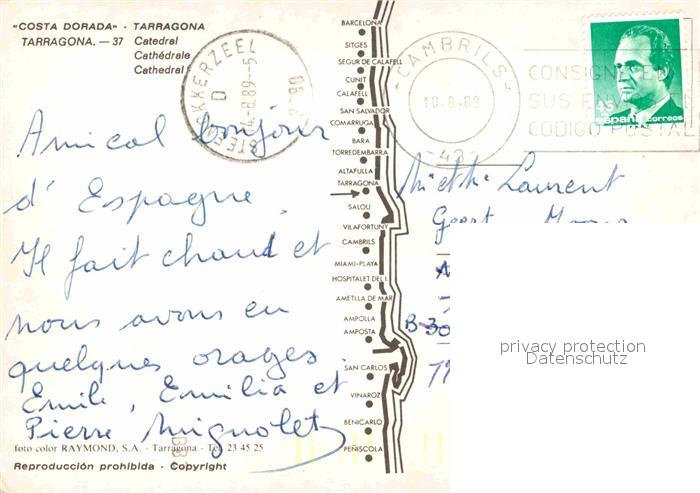 "COSTA DORADA" - TARRAGONA
TARRAGONA. — 37 Catedral
Cathédrale
Cathedral
Amical bonjour
d'Espagne.
Il fait chaud et
nous avons eu
quelques orages.
Emile, Emilia et
Pierre Mignolet
foto color RAYMOND, S.A. - Tarragona - Tel. 23 45 25
Reproducción prohibida - Copyright
KKERZEEL
D
-8-89-5
BARCELONA
SITGES
SEGUR DE CALAFELL
CUNIT
CALAFELL
SAN SALVADOR
COMARRUGA
BARA
TORREDEMBARRA
ALTAFULLA
TARRAGONA
SALOU
VILAFORTUNY
CAMBRILS
MIAMI-PLAYA
HOSPITALET DEL I.
AMETLLA DE MAR
AMPOLLA
AMPOSTA
SAN CARLOS
VINAROZ
BENICARLO
PEÑISCOLA
-CAMBRILS-
10-8-89
-43-
CONSIGNE EN
SUS EN
CODIGO POSTAL
45
españa correos
Laurent
B-30
privacy protection
Datenschutz